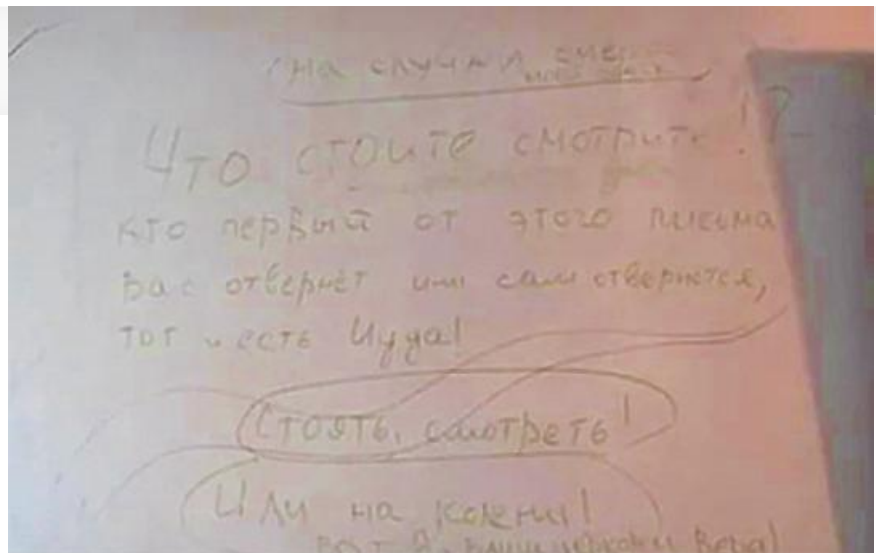 на случай
Что стоите смотрите!?
кто первый от этого письма
вас отвернёт или сам отвернется,
тот и есть Иуда!
Стоять, смотреть!
Или на колени!
вот я